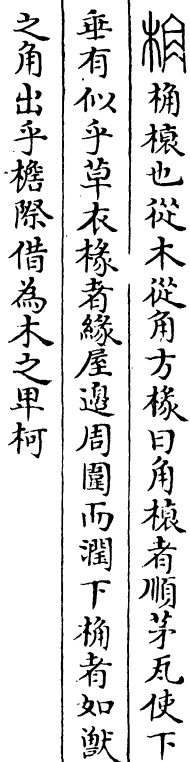 桷 桷榱也從木從角方椽曰角榱者順茅瓦使下
垂有似乎草衣椽者緣屋邉周圍而潤下桷者如獸
之角出乎檐際借為木之甲柯